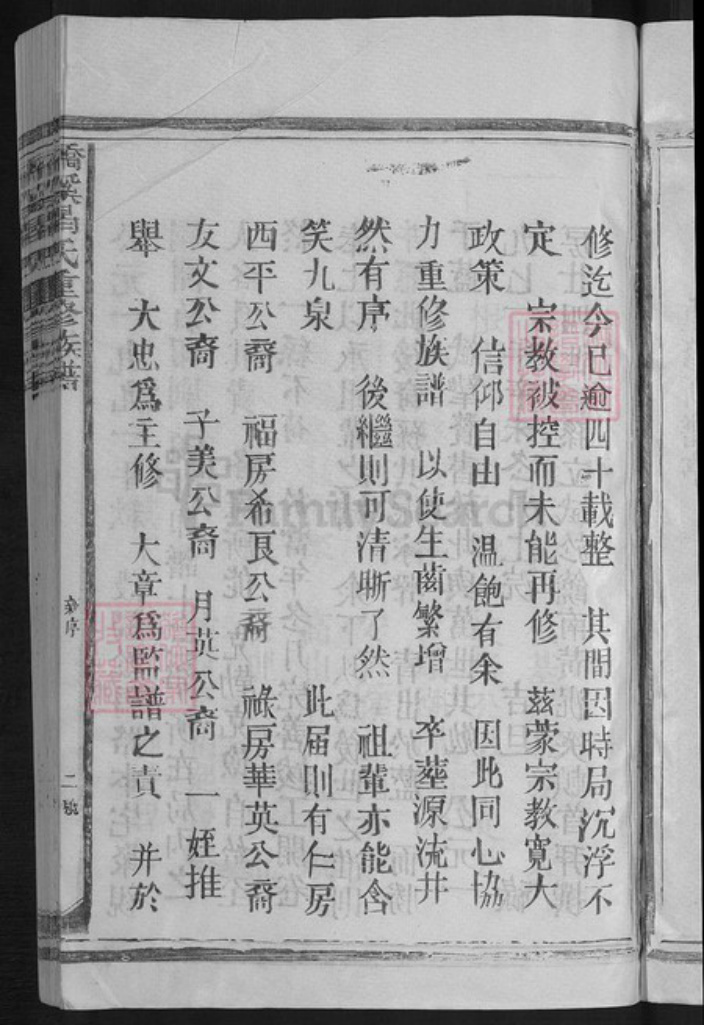 修迄今已逾四十載整　其間因時局沉浮不
定　宗教被控而未能再修　茲蒙宗教寬大
政策　信仰自由　温飽有余　因此同心協
力重修族譜　以使生齒繁增　卒塟源流井
然有序　後繼則可清晰了然　祖輩亦能含
笑九泉　此届則有仁房
西平公裔　福房希良公裔　祿房華英公裔
友文公裔　子美公裔　月英公裔　一姪推
舉　大忠爲主修　大章爲監譜之責　并於
氏重修族譜
序
二號
FamilySearch